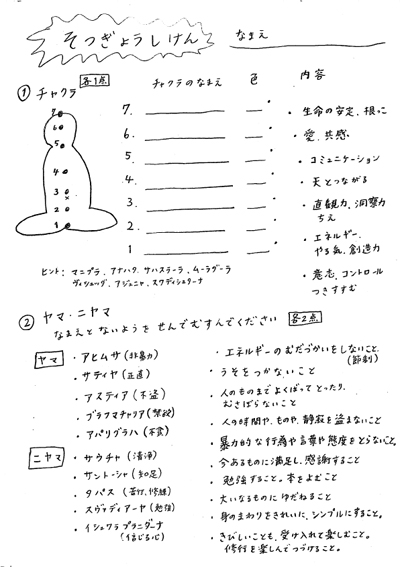 そつぎょうしけん
なまえ
① チャクラ 各1点
チャクラのなまえ 色 内容
7.
6.
5.
4.
3.
2.
1
7
6
5
4
3
2
1
・生命の安定、根っこ
・愛、共感
・コミュニケーション
・天とつながる
・直観力、洞察力
ちえ
・エネルギー、
やる気、創造力
・意志、コントロール
つきすすむ
ヒント: マニプラ、アナハタ、サハスラーラ、ムーラダーラ
ヴィシュッダ、アジュニャ、スワディシュターナ
② ヤマ・ニヤマ
なまえとないようを せんでむすんでください 各2点
ヤマ
・アヒムサ(非暴力)
・サティヤ(正直)
・アスティア(不盗)
・ブラフマチャリア(禁欲)
・アパリグラハ(不貪)
ニヤマ
・サウチャ(清浄)
・サントーシャ(知足)
・タパス(苦行、修練)
・スヴァディアーヤ(勉強)
・イシュワラプラニダーナ
(信じる心)
・エネルギーのむだづかいをしないこと。
(節制)
・うそをつかないこと
・人のものまでよくばってとったり、
むさぼらないこと
・人の時間や、ものや、静寂を盗まないこと
・暴力的な行為や言葉や態度をとらないこと。
・今あるものに満足し、感謝すること
・勉強すること。本をよむこと
・大いなるものにゆだねること
・身のまわりをきれいに、シンプルにすること。
・きびしいことも、受け入れて楽しむこと。
修行を楽しんでつづけること。